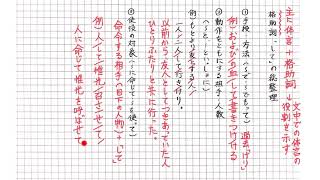 主に体言+格助詞→文中での体言の
役割を示す
格助詞「して」の総整理
①手段・方法(〜で・〜でもって)
過去「けり」
例)およびの血して書きつけける
②動作をともにする相手・人数
(〜と・〜といっしょに)
例)もとより友とする人/
一人/二人して行きけり。
以前から友人としてつきあっていた人
ひとりふたりと共に行った。
③使役の対象(〜に命じて・〜を使って)
命令する相手(目下の人物)+「して」
例)人/して/惟光/召さ/せ/て/
人に命じて惟光を呼ばせて、